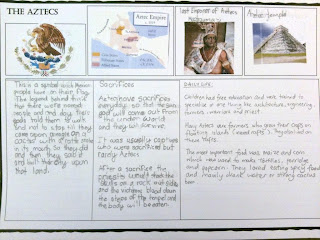 THE AZTECS
Aztec Empire
Last Emperor of Aztecs
Aztec temple
This is a symbol wich Mexican
people have on their flag.
The legend behind this is
that there were some
people and one day their
gods told them to walk
and not to stop till they
came upon an eagle on a
cactus with a snake
in its mouth. So they did
and then they said it
and will develop upon
that land.
Sacrifices
Aztecs have sacrifices
everyday so that the sun
god will come out from
the under world
and they will survive.
It was usually captives
who were sacrificed but
rarely Aztecs
After a sacrifice the
priests would stack the
skulls on a rack outside
and the victims blood down
the steps of the temple and
the body will be eaten.
DAILY LIFE
Children had free education and were trained to
specialise in one thing like architecture, engineering,
farmers, warriors and priest.
Most Aztecs are farmers who grew their crops on
floating islands
The most important food was maize and corn
which were used to make tortillas, porridge
and popcorn. They loved eating spicy food
and mostly drank water or strong cactus
beer